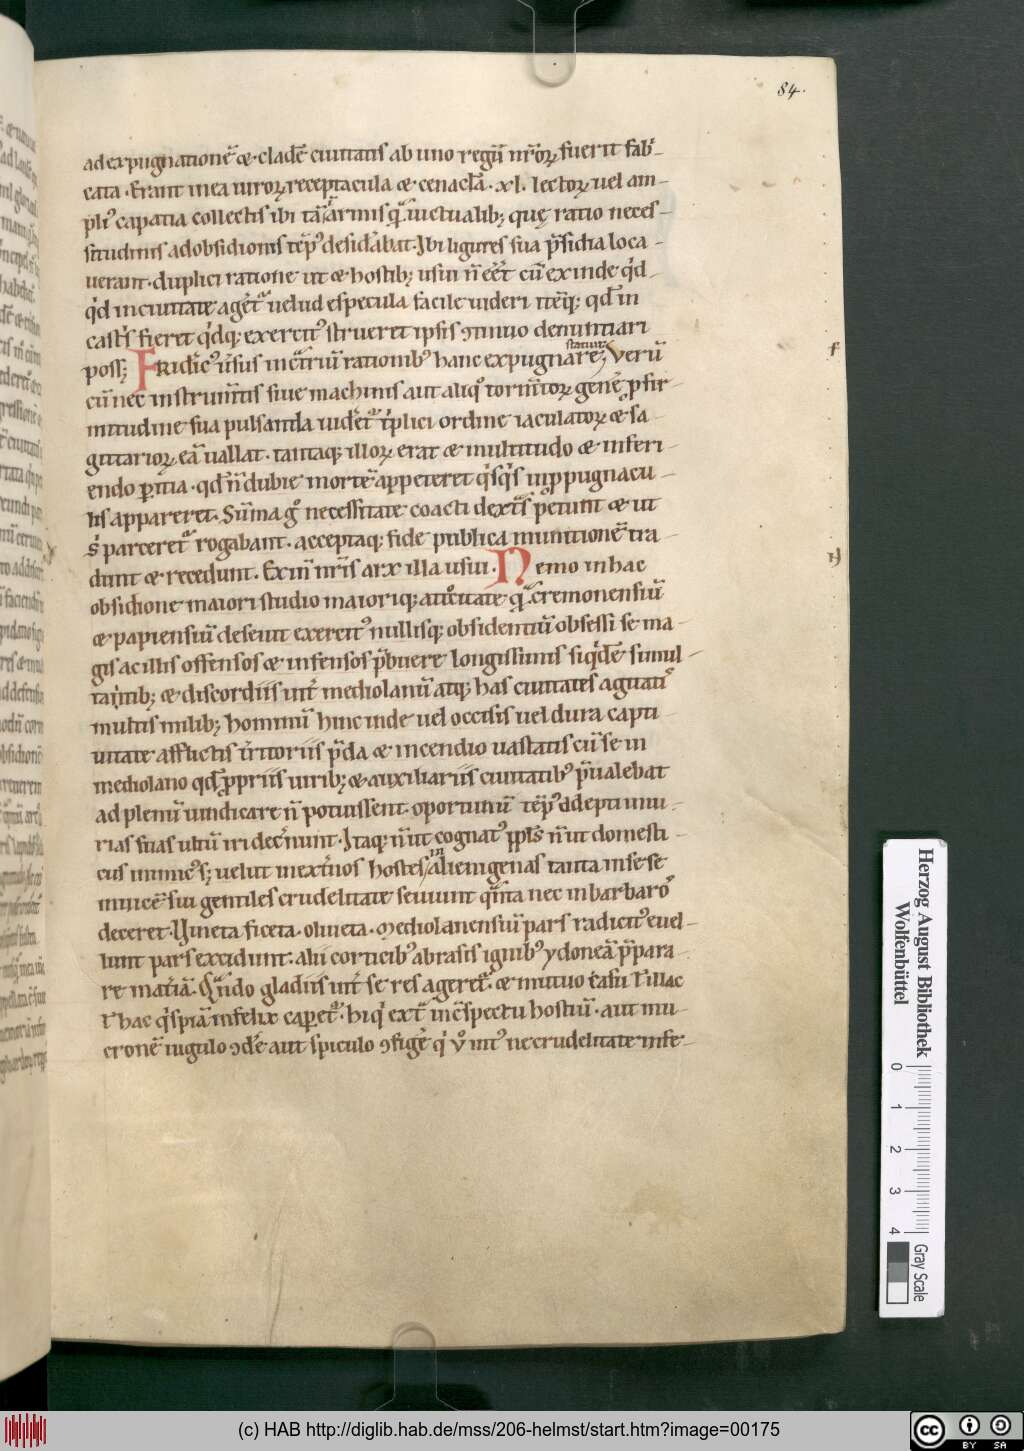 84.
ad expugnationē æ cladē ciuitatis ab uno regū nr̄oꝝ fuerit fab͛-
cata. Erant in ea uiroꝝ receptacula æ cenacl̄a .xl. lectoꝝ uel am-
pli᾽ capatia collectis ibi tā armis qᷓ uictualib; quę ratio neces-
situdinis ad obsidionis tēp᾽ desid͛abat. Ibi ligures sua p̄sidia loca-
uerant. duplici ratione ut æ hostib; usui n̄ eēt cū exinde qͥd-
qͥd in ciuitate agēt᷑ uelud e specula facile uideri itēq; qd̄ in
castͥs fieret qͥdq; exercit᾽ strueret ipsis ꝯtinuo denuntiari
poss; Fridic᾽ u͛sus inet͛riū rationib᾽ hanc expugnare statuit; Verū
cū nec instrum̄tis siue machinis aut aliqͦ torm̄toꝝ gen͛e ꝓ fir-
mitudine sua pulsanda uidēt᷑ tͥplici ordine iaculatoꝝ æ sa-
gittarioꝝ eā uallat. tantaq; illoꝝ erat æ multitudo æ inferi-
endo ꝑitia. qd̄ n̄ dubie mortē appeteret qͥsqͥs in ꝓpugnacu-
lis appareret. Sūma gͦ necessitate coacti dext͛s p̄etunt æ ut
s͛ parceret᷑ rogabant. acceptaq; fide publica munitionē tra-
dunt æ recedunt. Exin̄ nr̄is arx illa usui. Nemo in hac
obsidione maiori studio maioriq; atrōitate qᷓ cremonensiū
æ papiensiū deseuit exercit᾽ nullisq; obsidentiū obsessi se ma-
gis ac illis offensos æ infensos p̄buere longissimis siqͥdē simul-
tatib; æ discordiis int͛ mediolanū atq; has ciuitates agitatͥ
multis milib; hominū hinc inde uel occisis uel dura capti-
uitate afflictis t͛ritoriis p̄da æ incendio uastatis cū se in
mediolano qd̄ ꝓpriis uirib; æ auxiliariis ciuitatib᾽ p̄ualebat
ad plenū uindicare n̄ potuissent. oportunū tēp᾽ adepti iniu-
rias suas ultū iri dec͛nunt. Itaq; n̄ ut cognat᾽ ipl̄s n̄ ut domesti-
cus inimic᾽; uelut in ext͛nos hostes in alienigenas tanta in se se
inuicē sui gentiles crudelitate seuiunt qᷓnta nec in barbarͦ
deceret. Vineta ficeta oliueta. Mediolanensiū pars radicit᾽ euel-
lunt pars excidunt. alii corticib᾽ abrasis ignib᾽ ydoneā p̄para-
re mat͛iā. Qᷓndo gladiis int͛ se res ageret᷑. æ mutuo casu ł illac
ł hac qͥspiā infelix caꝑet᷑. hi qͥ ext̄ in ꝯspectu hostiū. aut mu-
cronē iugulo ꝯd͛e aut spiculo ꝯfig͛e qͥ u͛ int᾽ ne crudelitate infe-
Herzog August Bibliothek
Wolfenbüttel
0 1 2 3 4
Gray Scale
(c) HAB http://diglib.hab.de/mss/206-helmst/start.htm?image=00175
cc BY SA